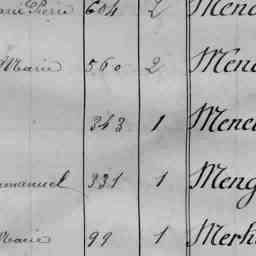 Pierre 604 2 Mene
Marie 560 2 Mene
343 1 Mene
mmanuel 331 1 Meng
Marie 99 1 Merk